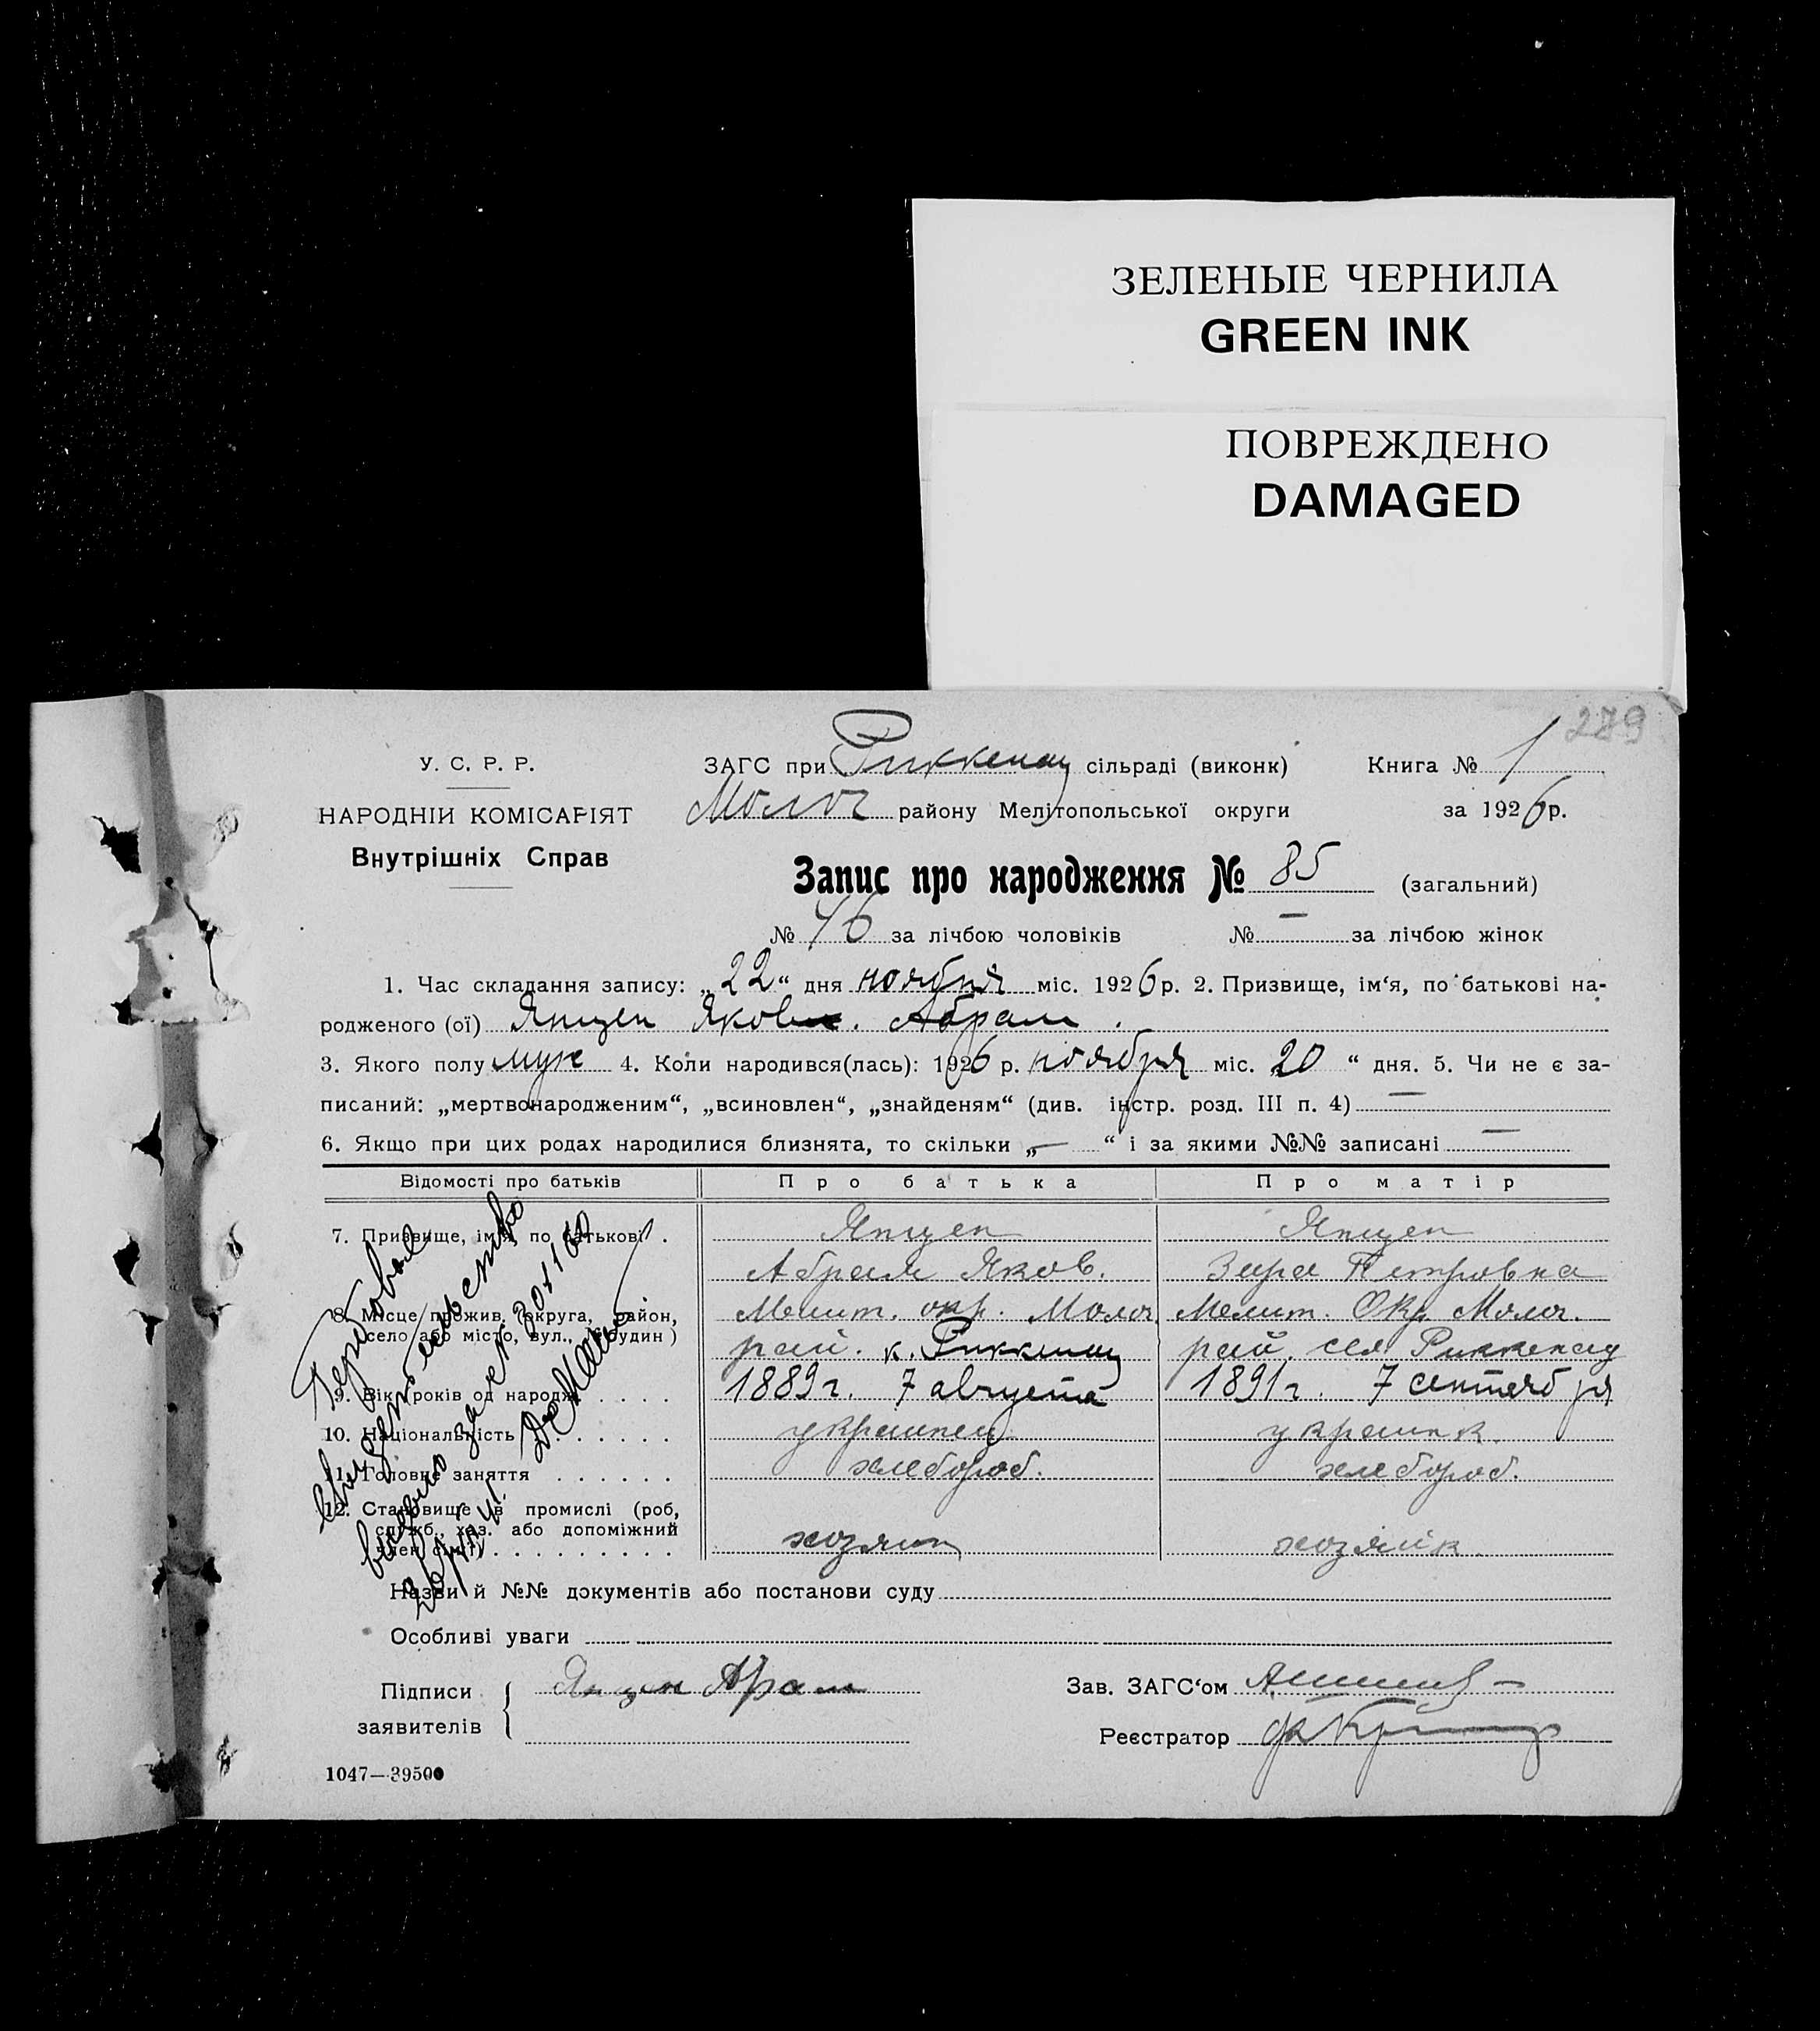 ЗЕЛЕНЫЕ ЧЕРНИЛА
GREEN INK
ПОВРЕЖДЕНО
DAMAGED
279
У. С. Р. Р.
НАРОДНІЙ КОМІСАРІЯТ
Внутрішніх Справ
ЗАГС при Риккенау сільраді (виконк) Книга № 1
Молоч району Мелітопольської округи за 1926 р.
Запис про народження № 85 (загальний)
№ 46 за лічбою чоловіків № — за лічбою жінок
1. Час складання запису: „22“ дня ноября міс. 1926 р. 2. Призвище, ім‘я, по батькові на-
родженого (ої) Янцен Яков. Абрам.
3. Якого полу муж 4. Коли народився(лась): 1926 р. ноября міс. „20“ дня. 5. Чи не є за-
писаний: „мертвонародженим“, „всиновлен“, „знайденям“ (див. інстр. розд. III п. 4) —
6. Якщо при цих родах народилися близнята, то скільки „—“ і за якими №№ записані —
Відомості про батьків Про батька Про матір
7. Призвище, ім‘я, по батькові . Янцен Янцен
Абрам Яков. Петровна
8. Місце прожив. (округа, район, Мелит. окр. Молоч. Мелит. Окр. Молоч.
село або місто, вул., № будин) рай. к. Риккенау рай. сел Риккенау
9. Вік (років од народж. . . . . 1889 г. 7 августа 1891 г. 7 сентября
10. Національність . . . . . . украинец украинк.
11. Головне заняття . . . . . . хлебороб. хлебороб.
12. Становище в промислі (роб,
служб., хаз. або допоміжний
член сім‘ї) . . . . . . . . . хозяин хозяйк.
Гербовое
свидетельство
выдано
Назви й №№ документів або постанови суду
Особливі уваги
Підписи
заявителів
Янцен Абрам
Зав. ЗАГС‘ом
Реєстратор
1047—39500